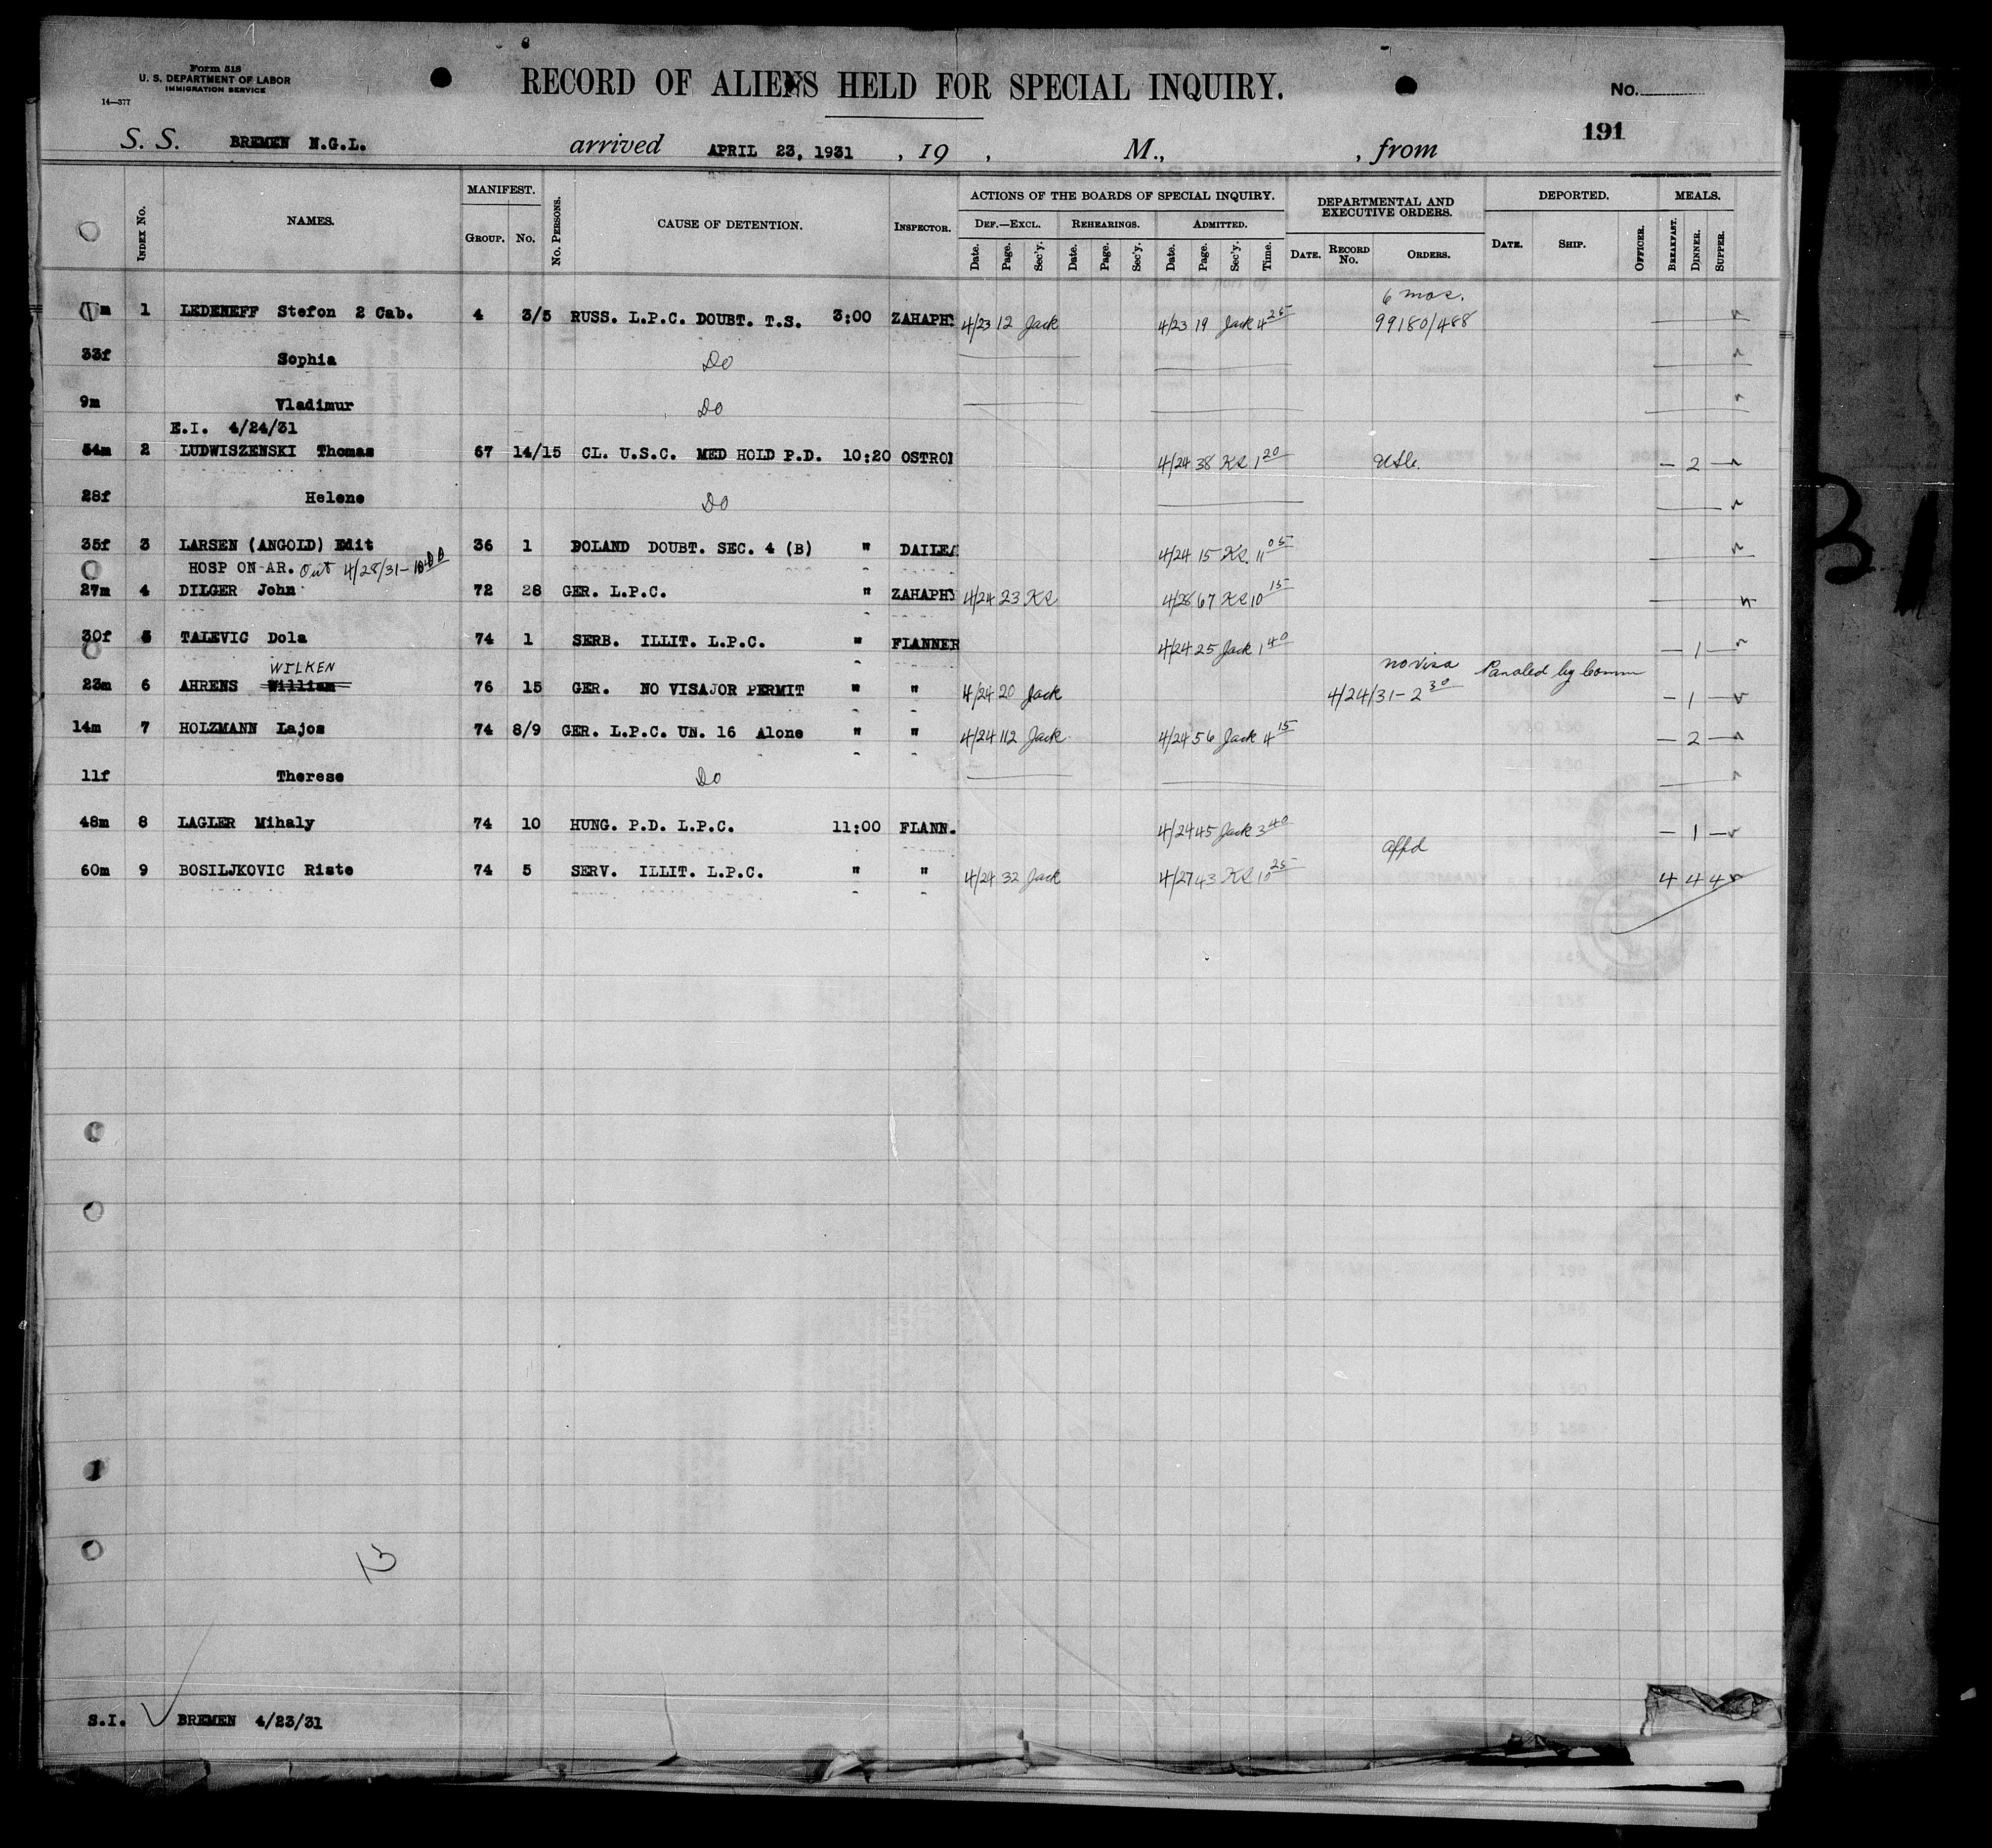 Form 518
U. S. DEPARTMENT OF LABOR
IMMIGRATION SERVICE
14—377
RECORD OF ALIENS HELD FOR SPECIAL INQUIRY.
No.
191
S. S. BREMEN N.G.L. arrived APRIL 23, 1931 , 19 , M., , from
INDEX No. NAMES. MANIFEST. GROUP. No. No. PERSONS. CAUSE OF DETENTION. INSPECTOR. ACTIONS OF THE BOARDS OF SPECIAL INQUIRY. DEPARTMENTAL AND EXECUTIVE ORDERS. DEPORTED. MEALS.
DEF.—EXCL. REHEARINGS. ADMITTED.
Date. Page. Sec'y. Date. Page. Sec'y. Date. Page. Sec'y. Time. DATE. RECORD No. ORDERS. DATE. SHIP. OFFICER. BREAKFAST. DINNER. SUPPER.
6 mos.
m 1 LEDENEFF Stefon 2 Cab. 4 3/5 RUSS. L.P.C. DOUBT. T.S. 3:00 ZAHAPHY 4/23 12 Jack 4/23 19 Jack 4 25 99180/488
33f Sophia Do
9m Vladimur Do
E.I. 4/24/31
54m 2 LUDWISZENSKI Thomas 67 14/15 CL. U.S.C. MED HOLD P.D. 10:20 OSTRO 4/24 38 KS 1 20 — 2 —
28f Helene Do
35f 3 LARSEN (ANGOLD) Edit 36 1 DOUBT. SEC. 4 (B) " DAILEA 4/24 15 KS. 11 05
HOSP ON AR. Out 4/28/31-
27m 4 DILGER John 72 28 GER. L.P.C. " ZAHAPHY 4/24 23 KS 4/28 67 KS 10 15
30f 5 TALEVIC Dola 74 1 SERB. ILLIT. L.P.C. " FLANNER 4/24 25 Jack 1 40 — 1 —
WILKEN no visa by Comm
23m 6 AHRENS William 76 15 GER. NO VISA OR PERMIT " " 4/24 20 Jack 4/24/31 - 2 30 — 1 —
14m 7 HOLZMANN Lajos 74 8/9 GER. L.P.C. UN. 16 Alone " " 4/24 112 Jack 4/24 56 Jack 4 15 — 2 —
11f Therese Do
48m 8 LAGLER Mihaly 74 10 HUNG. P.D. L.P.C. 11:00 FLANN. 4/24 45 Jack 3 40 — 1 —
affd
60m 9 BOSILJKOVIC Riste 74 5 SERV. ILLIT. L.P.C. " " 4/24 32 Jack 4/27 43 KS 10 25 4 4 4
13
S.I. BREMEN 4/23/31